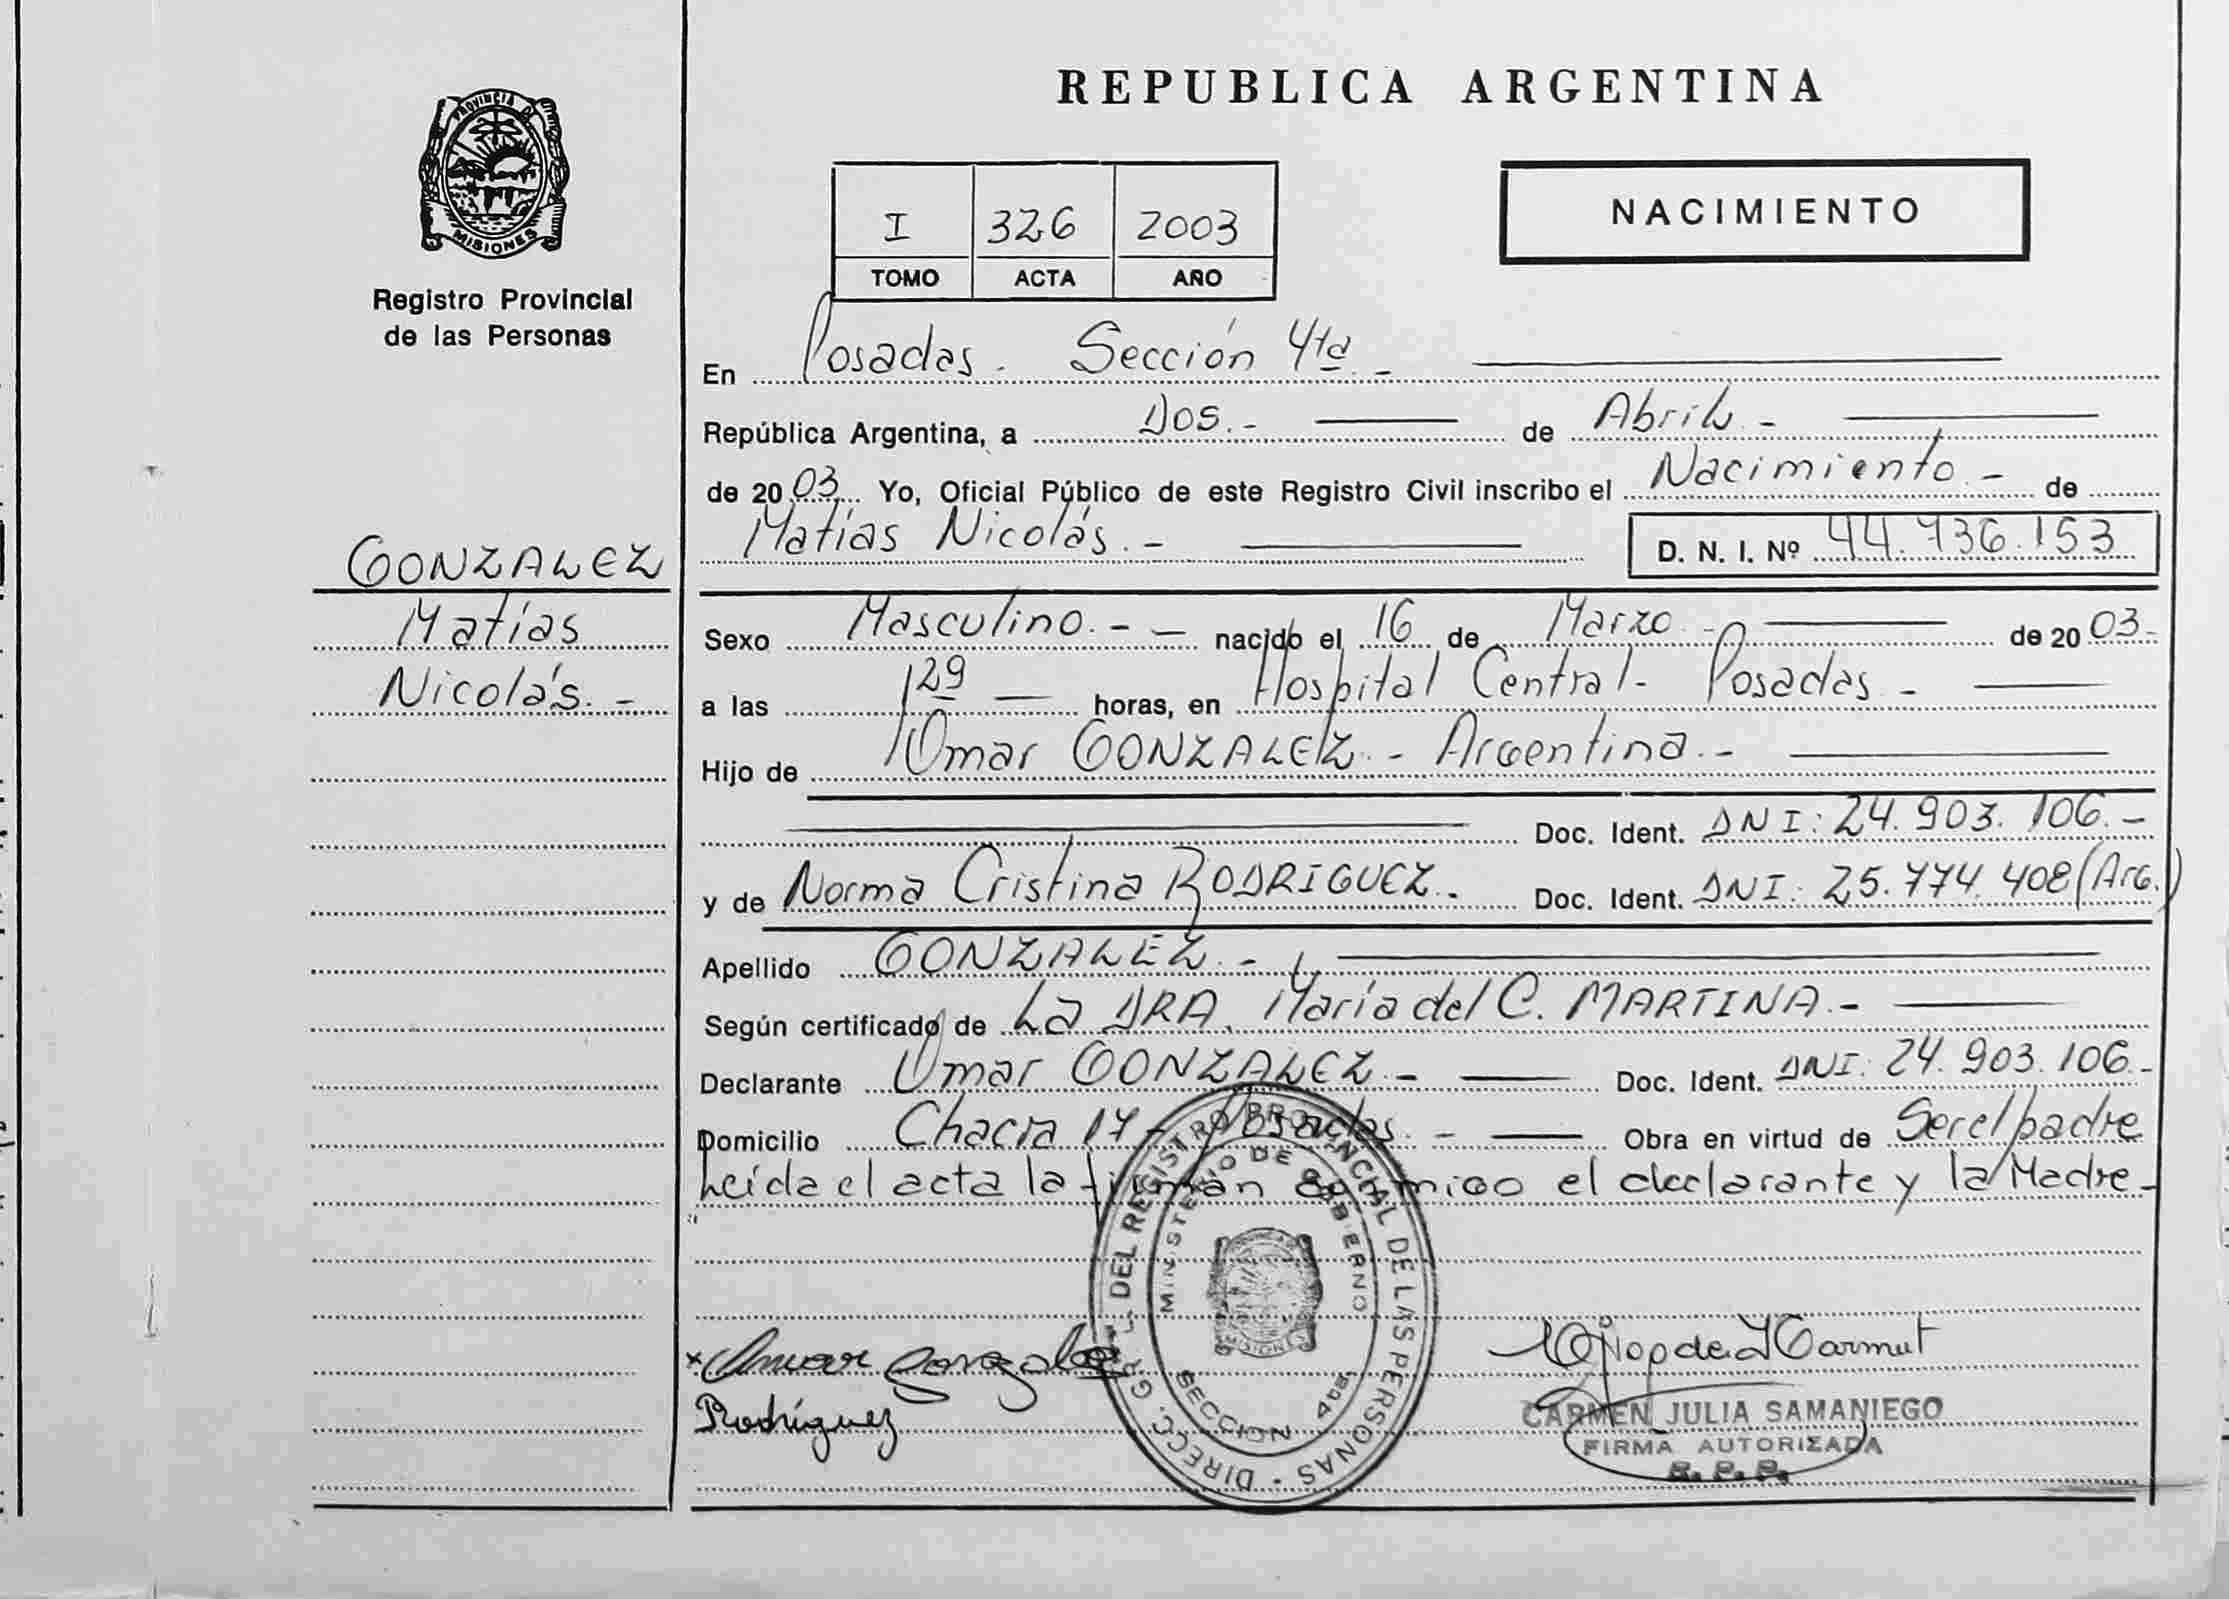 PROVINCIA DE
MISIONES
Registro Provincial
de las Personas
GONZALEZ
Matías
Nicolás.-
REPUBLICA ARGENTINA
I 326 2003
TOMO ACTA AÑO
NACIMIENTO
En Posadas. Sección 4ta.-
República Argentina, a Dos.- de Abril.-
de 2003 Yo, Oficial Público de este Registro Civil inscribo el Nacimiento.- de
Matías Nicolás.- D. N. I. Nº 44.736.153
Sexo Masculino.- nacido el 16 de Marzo.- de 2003.-
a las 1 29 horas, en Hospital Central- Posadas.-
Hijo de Omar GONZALEZ.- Argentina.-
Doc. Ident. DNI: 24.903.106.-
y de Norma Cristina RODRIGUEZ.- Doc. Ident. DNI: 25.774.408 (Arg.)
Apellido GONZALEZ.-
Según certificado de La DRA. María del C. MARTINA.-
Declarante Omar GONZALEZ.- Doc. Ident. DNI: 24.903.106.-
Domicilio Chacra 17- Posadas.- Obra en virtud de Ser el padre
Leída el acta la firman conmigo el declarante y la Madre-
DIRECC. GRAL. DEL REGISTRO PROVINCIAL DE LAS PERSONAS
MINISTERIO DE GOBIERNO
MISIONES
SECCION 4ta
Omar Gonzalez
Rodríguez
CARMEN JULIA SAMANIEGO
FIRMA AUTORIZADA
R. P. P.